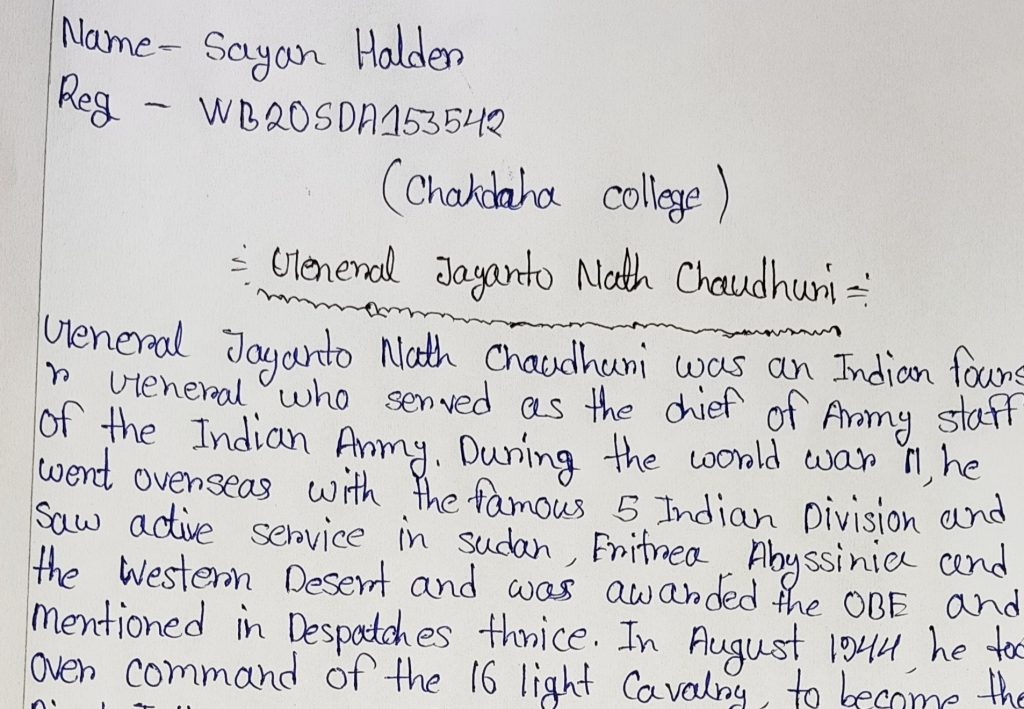 Name - Sayan Halder
Reg - WB20SDA153542
(Chakdaha college)
= General Jayanto Nath Chaudhuri =
General Jayanto Nath Chaudhuri was an Indian fours
r General who served as the chief of Army staff
of the Indian Army. During the world war II, he
went overseas with the famous 5 Indian Division and
Saw active service in sudan, Eritrea Abyssinia and
the Western Desert and was awarded the OBE and
Mentioned in Despatches thrice. In August 1944 he too
over command of the 16 light Cavalry, to become the